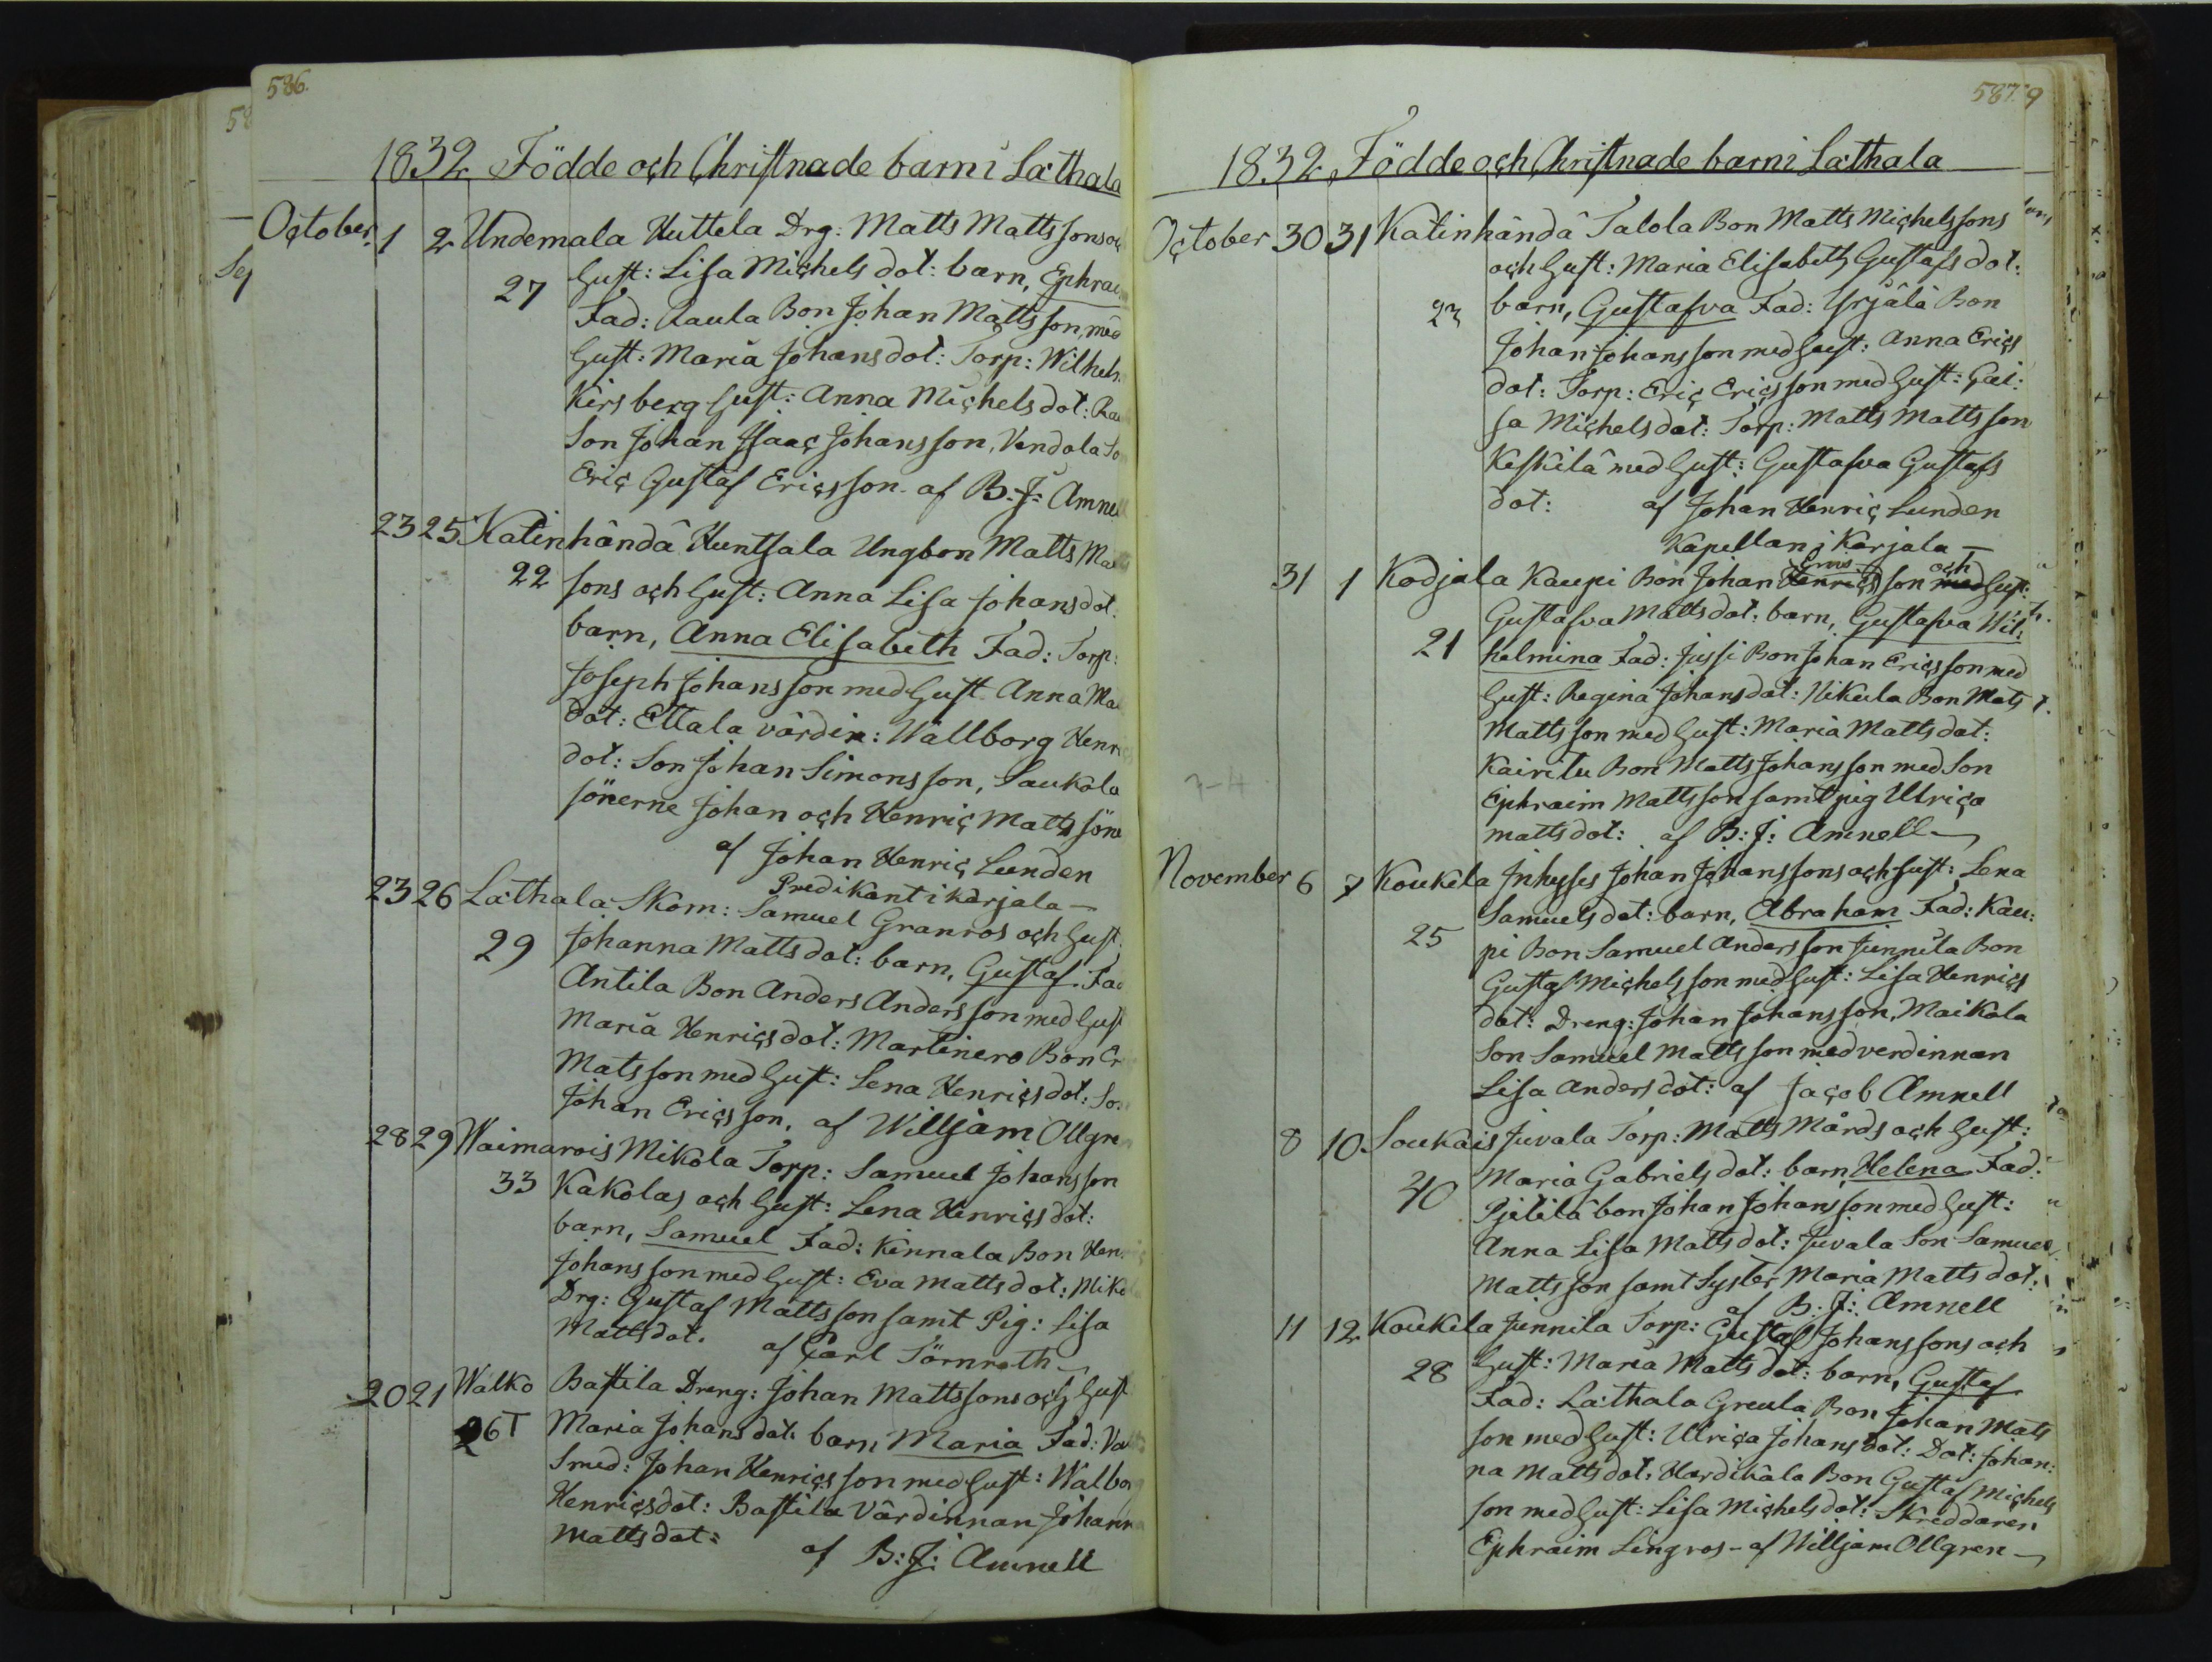 586.
1832 Födde och Christnade barn i Lathala
October 1 2 Undemala Huttela Drg: Matts Mattssons och
27 Hust: Lisa Michelsdot: barn, Ephraim
Fad: Raula Bon Johan Mattsson, med
Hust: Maria Johansdot: Torp: Wilhelm
Kirsberg Hust: Anna Michelsdot: Rau
Son Johan Isaac Johansson, Vendola Son
Eric Gustaf Ericsson af B: J: Amnell
23 25 Katinhändä Huntsala Ungbon Matts Matts
22 sons och Hust: Anna Lisa Johansdot:
barn, Anna Elisabeth Fad: Torp:
Joseph Johansson med Hust Anna Ma
dot: Ettala värdin: Wallborg Henrics
dot: Son Johan Simonsson, Saukola
sönerne Johan och Henric Matts söne
af Johan Henric Lunden
Predikant i Karjala —
23 26 Lathala Skom: Samuel Granros och Hust:
29 Johanna Mattsdot: barn, Gustaf. Fad
Antila Bon Anders Andersson med Hust
Maria Henricsdot: Martinero Bon Er
Matsson med Hust: Lena Henricsdot: Son
Johan Ericsson, af Williàm Ollgren
28 29 Waimarois Mikola Torp: Samuel Johansson
33 Kakolas och Hust: Lena Henricsdot:
barn, Samuel Fad: Kinnala Bon Henric
Johansson med Hust: Eva Mattsdot: Mikola
Drg: Gustaf Mattsson samt Pig: Lisa
Mattsdot. af Carl Törnroth —
20 21 Walko Bastila Dreng: Johan Mattssons och Hust
26T Maria Johansdot: barn Maria Fad: Valko
Smed: Johan Henricsson med Hust: Walborg
Henricsdot: Bastila Värdinnan Johanna
Mattsdot: af B: J: Amnell
587.
1832 Födde och Christnade barn i Lathala
October 30 31 Katinhändä Talola Bon Matts Michelssons
och Hust: Maria Elisabeth Gustafsdot:
23 barn, Gustafva Fad: Yrjälä Bon
Johan Johansson med Hust: Anna Erics
dot: Torp: Eric Ericsson med Hust: Cai:
sa Michelsdot: Torp: Matts Mattsson
Keskilä med Hust: Gustafva Gustafs
dot: af Johan Henric Lunden
Kapellan i Karjala —
31 1 Kodjala Kaupi Bon Johan Henrics son med och Hust:
Gustafva Mattsdot: barn, Gustafva Wil:
21 helmina Fad: Jussi Bon Johan Ericsson med
Hust: Regina Johansdot: Nikula Bon Mats
Mattsson med Hust: Maria Mattsdot:
Kairitu Bon Matts Johansson med Son
Ephraim Mattsson samt pig Ulrica
mattsdot: af B: J: Amnell —
7-4
November 6 7 Koukela Inhyses Johan Johanssons och Hust: Lena
Samuelsdot: barn, Abraham Fad: Kau:
25 pi Bon Samuel Andersson Junnila Bon
Gustaf Michelsson med Hust: Lisa Henrics
dot: Dreng: Johan Johansson, Maikola
Son Samuel Mattsson med verdinnan
Lisa Andersdot: af Jacob Amnell
8 10 Soukais Juvala Torp: Matts Mårds och Hust:
Maria Gabrielsdot: barn, Helena Fad:
40 Pjetilä bon Johan Johansson med Hust:
Anna Lisa Mattsdot: Juvala Son Samuel
Mattsson samt Syster Maria Mattsdot:
af B: J: Amnell
11 12 Koukela Junnila Torp: Gustaf Johanssons och
28 Hust: Maria Mattsdot: barn, Gustaf
Fad: Lathala Greula Bon Johan Mats
son med Hust: Ulrica Johansdot: Dot: Johan:
na Mattsdot: Hardikala Bon Gustaf Michels
son med Hust: Lisa Michelsdot: Skreddaren
Ephraim Lingros - af Williàm Ollgren —